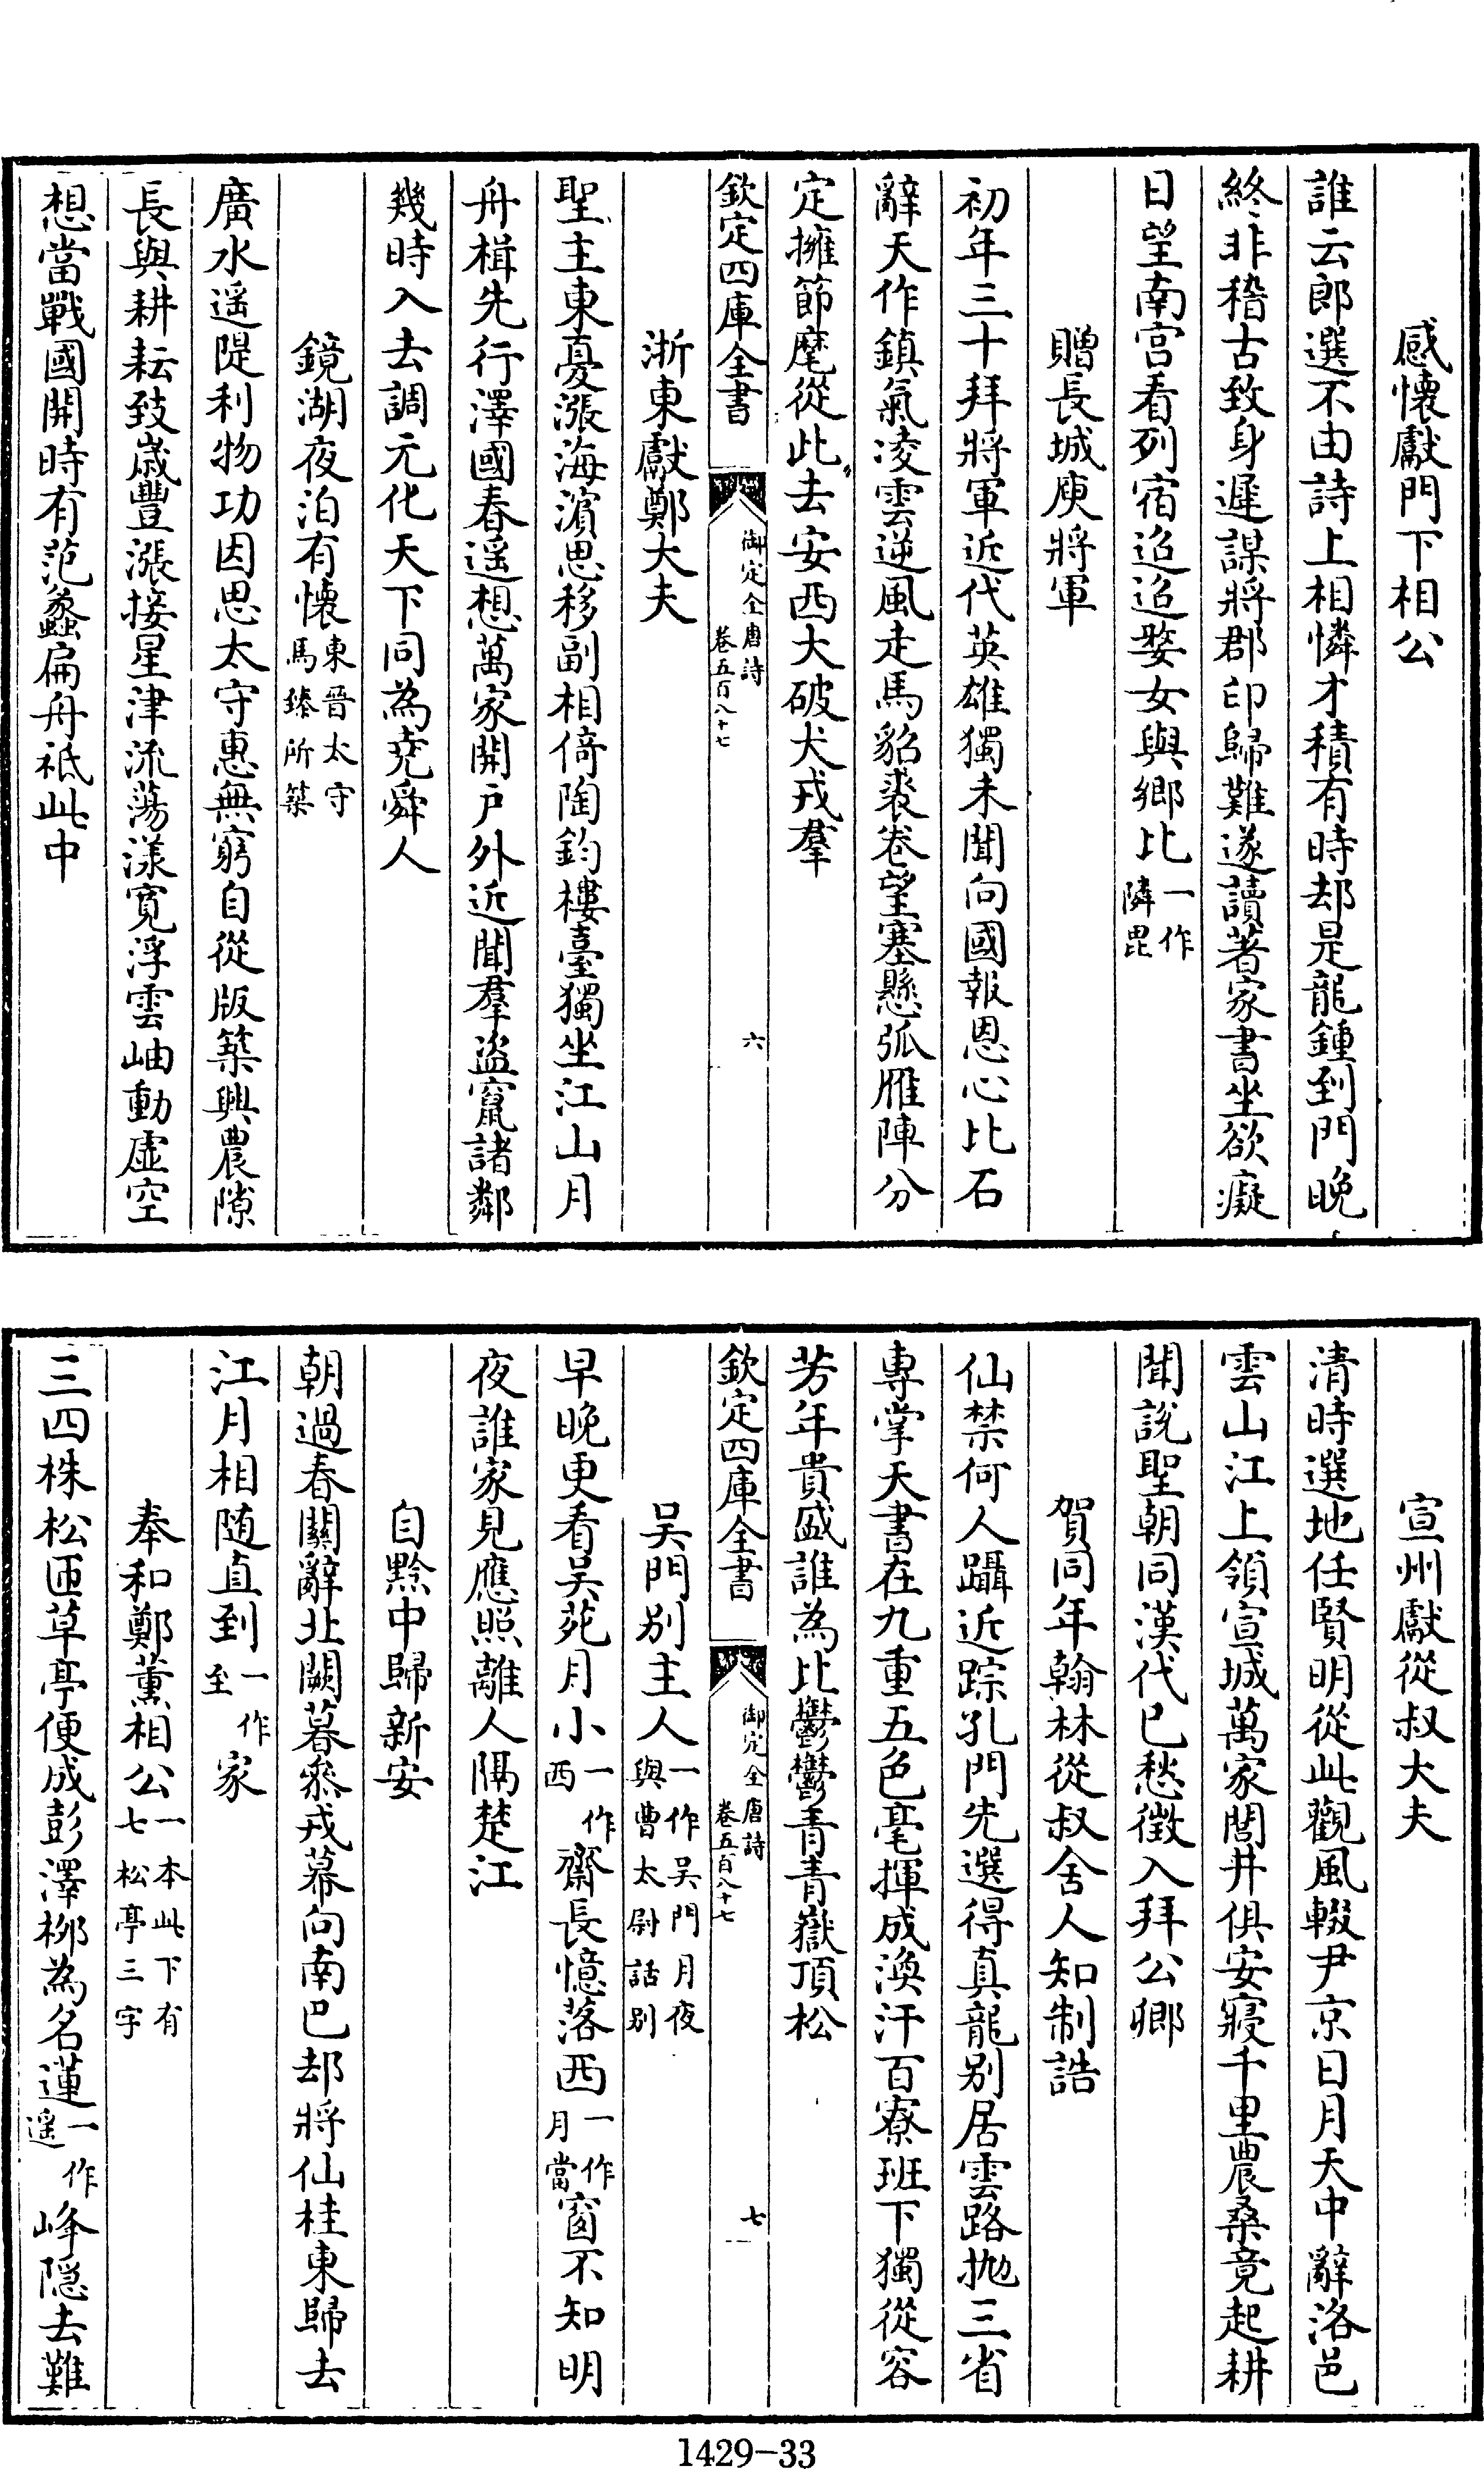 感懷獻門下相公
誰云郎選不由詩上相憐才積有時却是龍鍾到門晚
終非稽古致身遲謀將郡印歸難遂讀著家書坐欲癡
日望南宫看列宿迢迢婺女與鄉比一作隣毘
贈長城庾將軍
初年三十拜將軍近代英雄獨未聞向國報恩心比石
辭天作鎮氣凌雲逆風走馬貂裘卷望塞懸弧雁陣分
定擁節麾從此去安西大破犬戎羣
欽定四庫全書 御定全唐詩 卷五百八十七 六
浙東獻鄭大夫
聖主東憂漲海濵思移副相倚陶鈞樓臺獨坐江山月
舟楫先行澤國春遥想萬家開户外近聞羣盗竄諸鄰
幾時入去調元化天下同為堯舜人
鏡湖夜泊有懷東晋太守馬臻所築
廣水遥隄利物功因思太守惠無窮自從版築興農隙
長與耕耘致歲豐漲接星津流蕩漾寛浮雲岫動虛空
想當戰國開時有范蠡扁舟祗此中
宣州獻從叔大夫
清時選地任賢明從此觀風輟尹京日月天中辭洛邑
雲山江上領宣城萬家閭井俱安寢千里農桑竟起耕
聞説聖朝同漢代已愁徵入拜公卿
賀同年翰林從叔舍人知制誥
仙禁何人躡近踪孔門先選得真龍别居雲路抛三省
專掌天書在九重五色毫揮成渙汗百寮班下獨從容
芳年貴盛誰為比鬱鬱青青嶽頂松
欽定四庫全書 御定全唐詩 卷五百八十七 七
吴門别主人一作吴門月夜與曹太尉話别
早晚更看吴苑月小一作西齋長憶落西一作月當窗不知明
夜誰家見應照離人隔楚江
自黔中歸新安
朝過春關辭北闕暮參戎幕向南巴却將仙桂東歸去
江月相隨直到一作至家
奉和鄭薰相公一本此下有七松亭三字
三四株松匝草亭便成彭澤栁為名蓮一作遥峰隠去難
1429-33